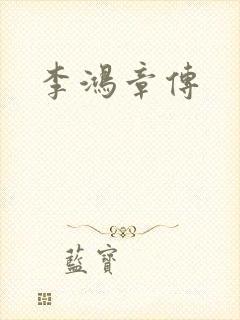 李鴻章傳
藍寶